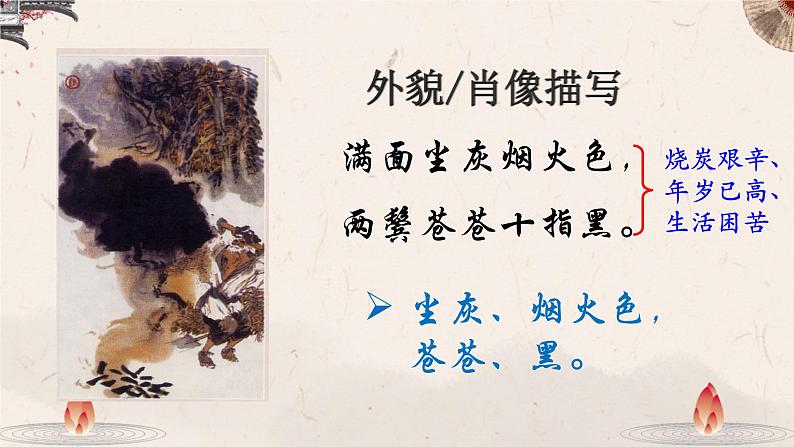 外貌/肖像描写
满面尘灰烟火色，
两鬓苍苍十指黑。
烧炭艰辛、
年岁已高、
生活困苦
尘灰、烟火色，
苍苍、黑。